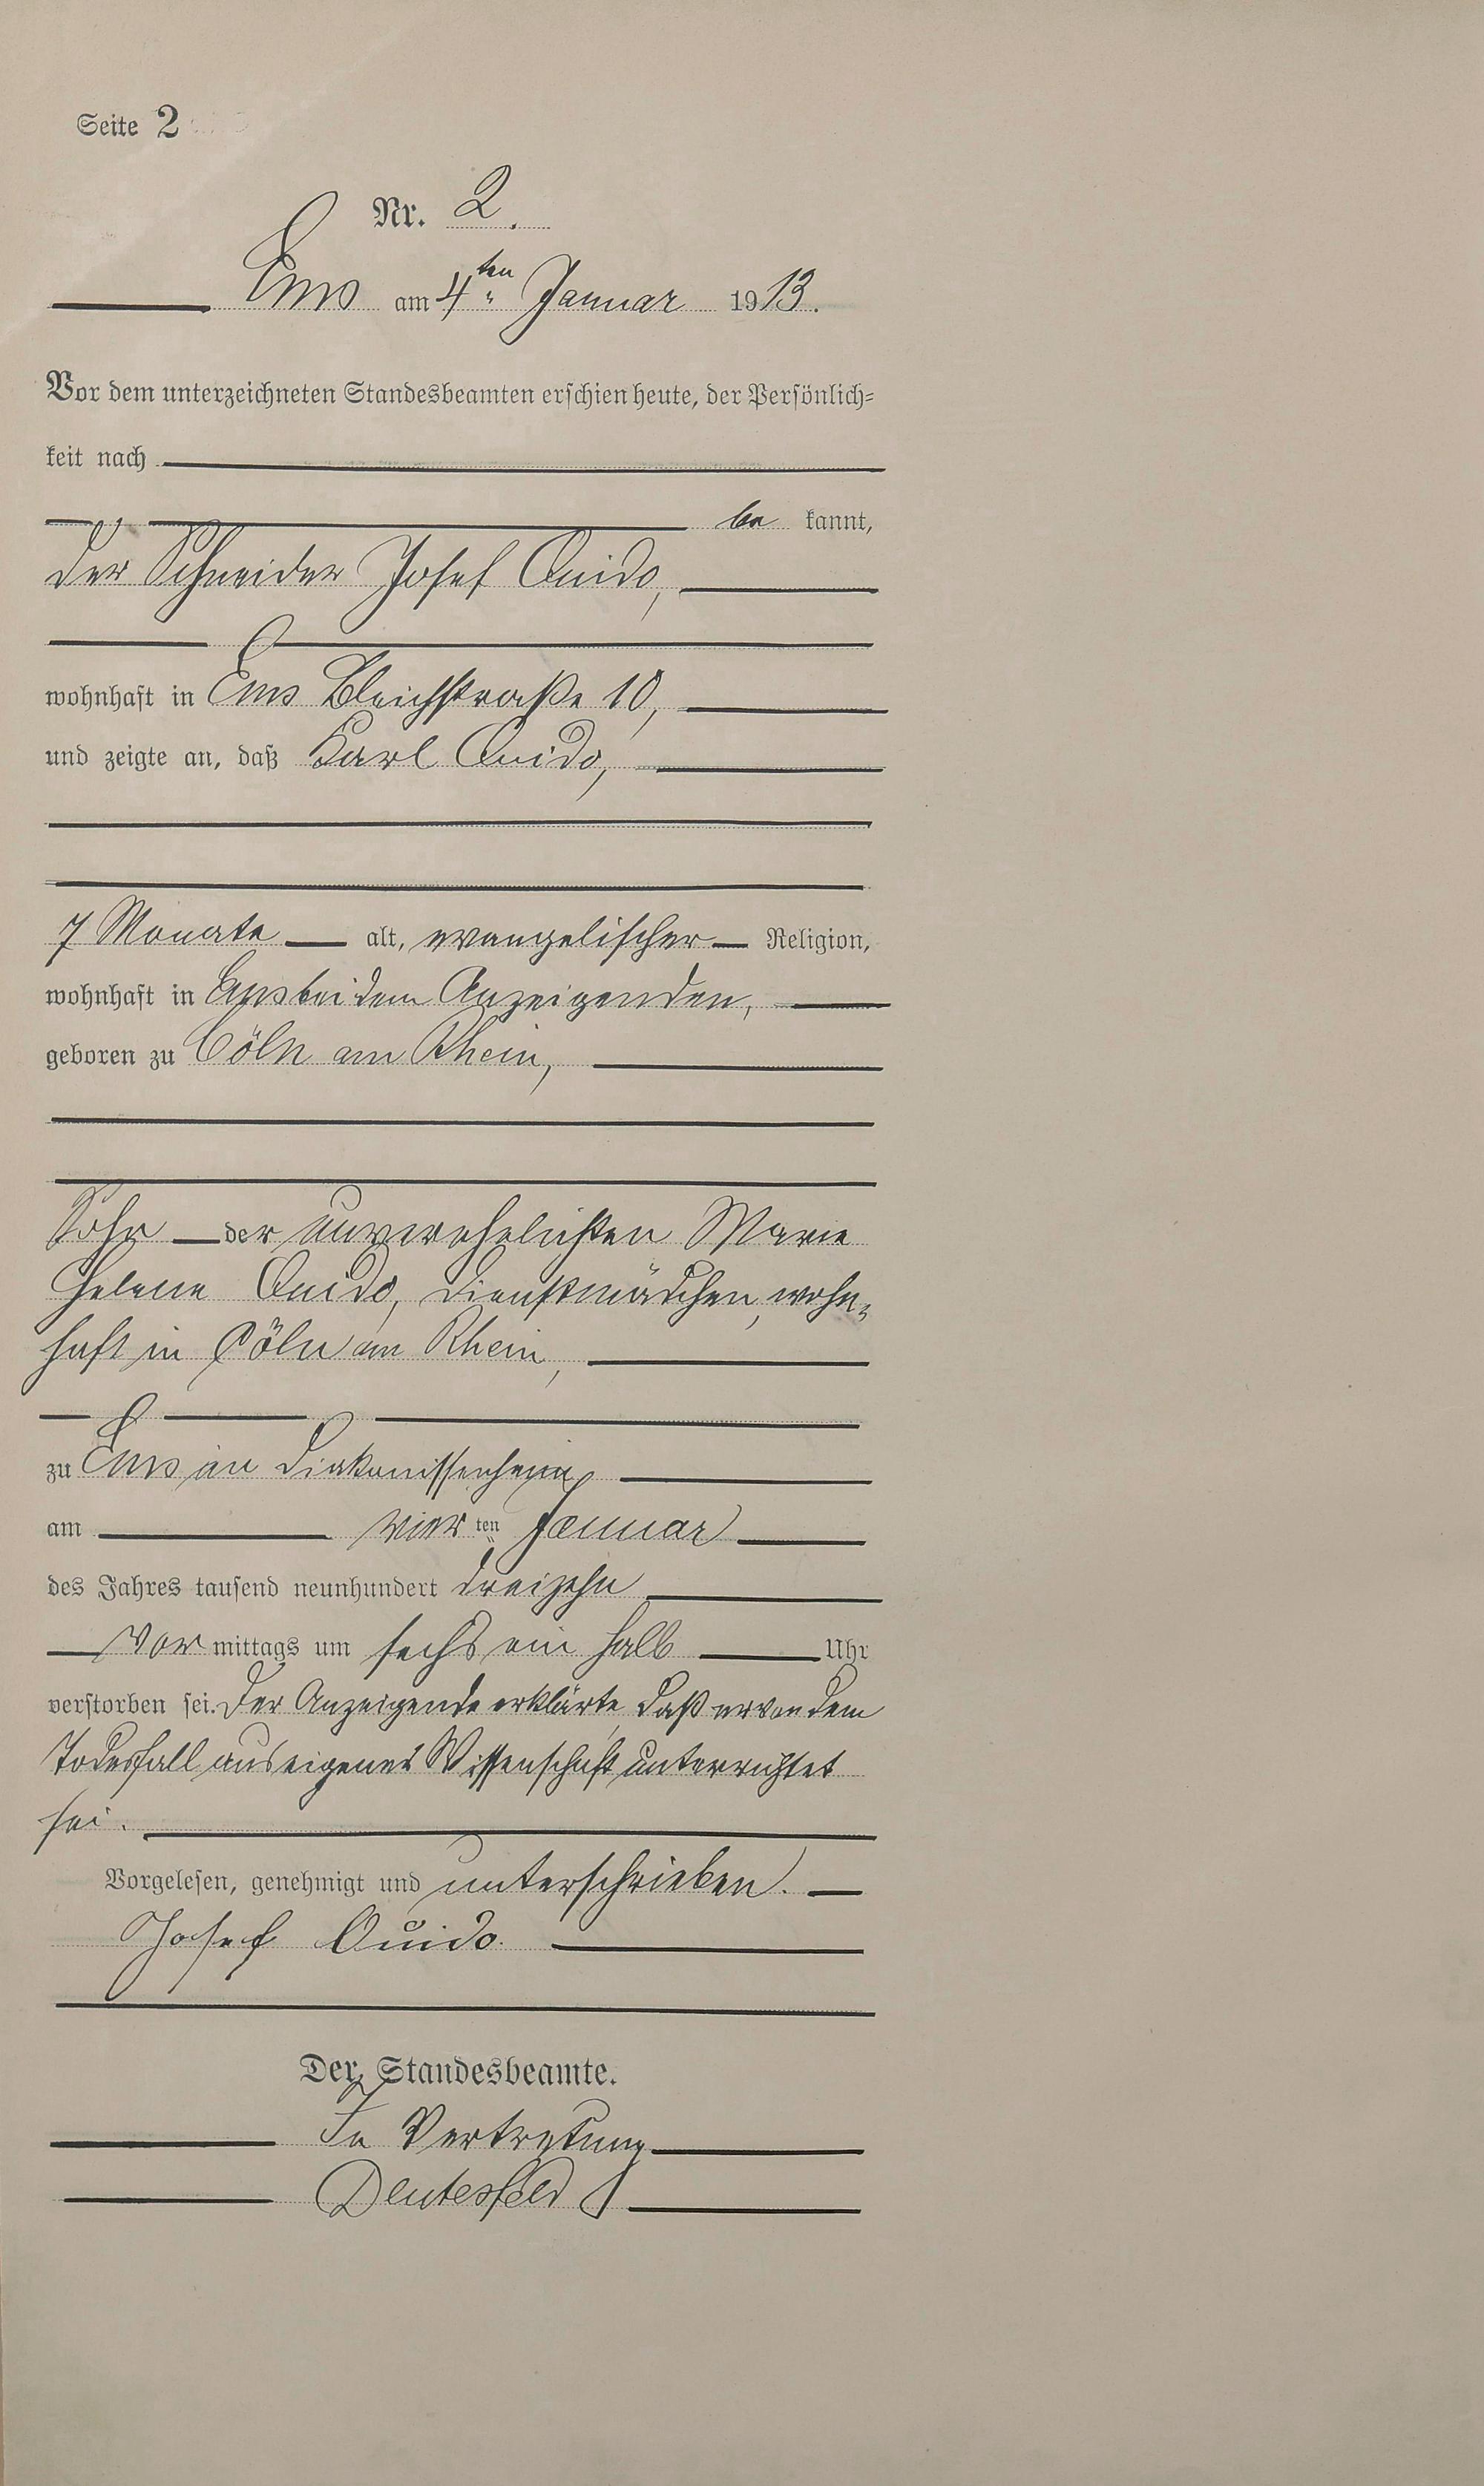 Seite 2
Nr. 2.
Ems am 4ten Januar 1913.
Vor dem unterzeichneten Standesbeamten erschien heute, der Persönlich=
keit nach
be kannt,
der Schneider Josef Quido,
wohnhaft in Ems Bleichstraße 10,
und zeigte an, daß Karl Quido,
7 Monate alt, evangelischer Religion,
wohnhaft in Ems bei dem Anzeigenden,
geboren zu Cöln am Rhein,
Sohn der unverehelichten Marie
Helene Quido, Dienstmädchen, wohn=
haft in Cöln am Rhein,
zu Ems im Diakonissenheim
am vier ten Januar
des Jahres tausend neunhundert dreizehn
Vor mittags um sechs ein halb Uhr
verstorben sei. Der Anzeigende erklärte, daß er von dem
Todesfall aus eigener Wissenschaft unterrichtet
sei.
Vorgelesen, genehmigt und unterschrieben.
Josef Quido
Der Standesbeamte.
In Vertretung
Deutesfeld